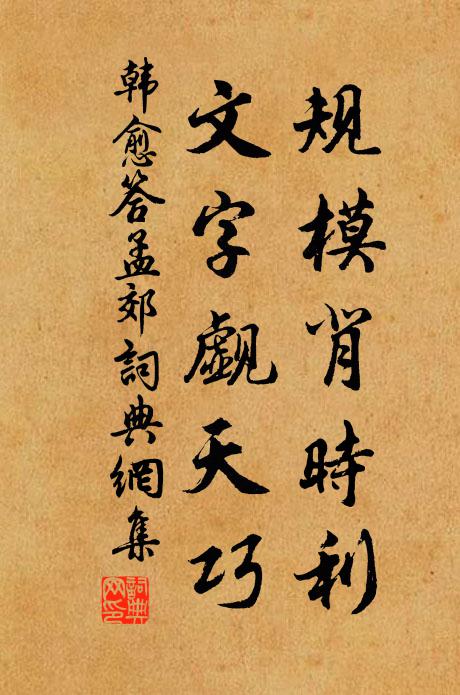 規模背時利
文字覷天巧
韓愈答孟郊詞典網集
詞典
网印